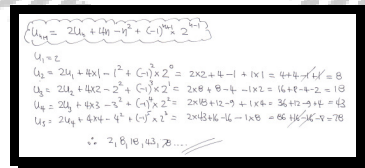 Uₙ₊₁ = 2Uₙ + 4n - n² + (-1)ⁿ⁺¹ × 2ⁿ⁻¹
U₁ = 2
U₂ = 2U₁ + 4×1 - 1² + (-1)² × 2⁰ = 2×2 + 4 - 1 + 1×1 = 4 + 4 - 1 + 1 = 8
U₃ = 2U₂ + 4×2 - 2² + (-1)³ × 2¹ = 2×8 + 8 - 4 - 1×2 = 16 + 8 - 4 - 2 = 18
U₄ = 2U₃ + 4×3 - 3² + (-1)⁴ × 2² = 2×18 + 12 - 9 + 1×4 = 36 + 12 - 9 + 4 = 43
U₅ = 2U₄ + 4×4 - 4² + (-1)⁵ × 2³ = 2×43 + 16 - 16 - 1×8 = 86 + 16 - 16 - 8 = 78
∴ 2, 8, 18, 43, 78, ....